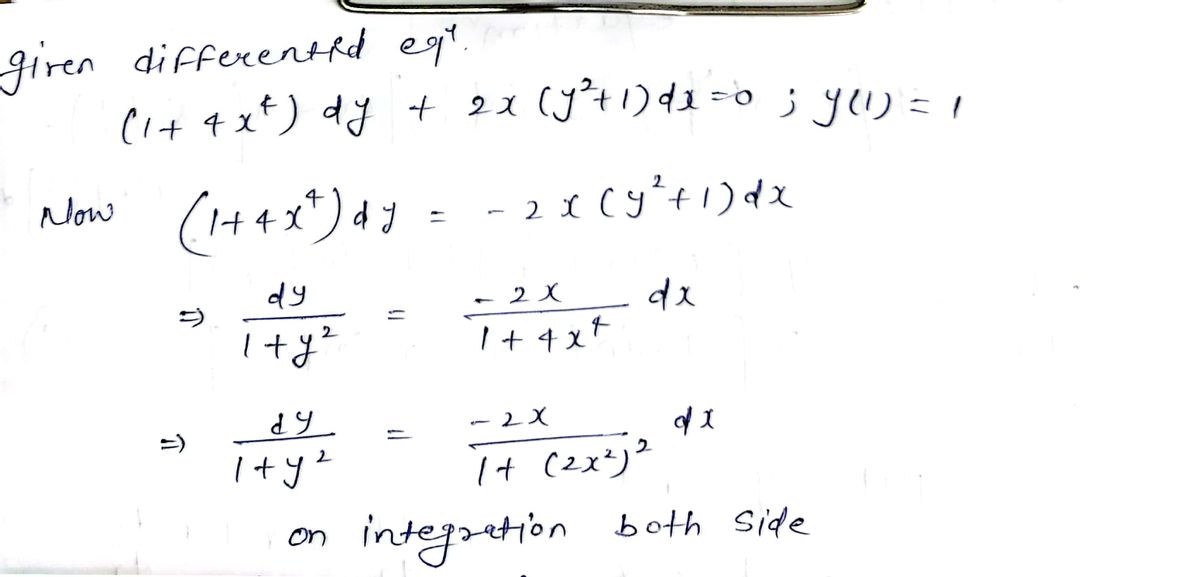 given differential eqn.
(1+4x⁴) dy + 2x (y²+1) dx = 0 ; y(1) = 1
Now (1+4x⁴) dy = -2x (y²+1) dx
⇒ dy/(1+y²) = -2x/(1+4x⁴) dx
⇒ dy/(1+y²) = -2x/(1+(2x²)²) dx
on integration both side